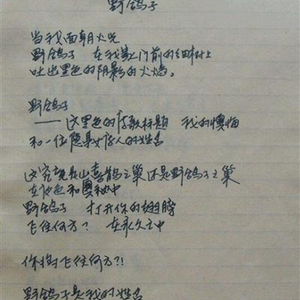 野鸽子
当我面朝火光
野鸽子 在我家门前的细树上
吐出黑色的阴影的火焰。
野鸽子
——这黑色的诗歌标题 我的懊悔
和一位隐身女诗人的姓名
这究竟是山喜鹊之巢还是野鸽子之巢
在夜色和奥秘中
野鸽子 打开你的翅膀
飞往何方？ 在永久之中
你将飞往何方？！
野鸽子是我的姓名